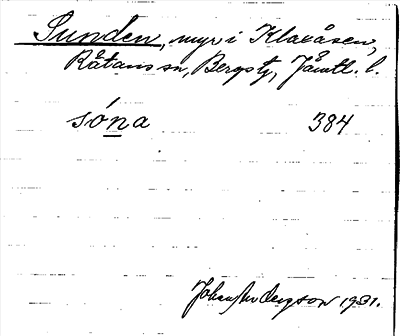 Sunden, myr i Klaxåsen,
Råtans sn, Bergs tg, Jämtl. l.
sóna 384
Johan Anderson 1931.